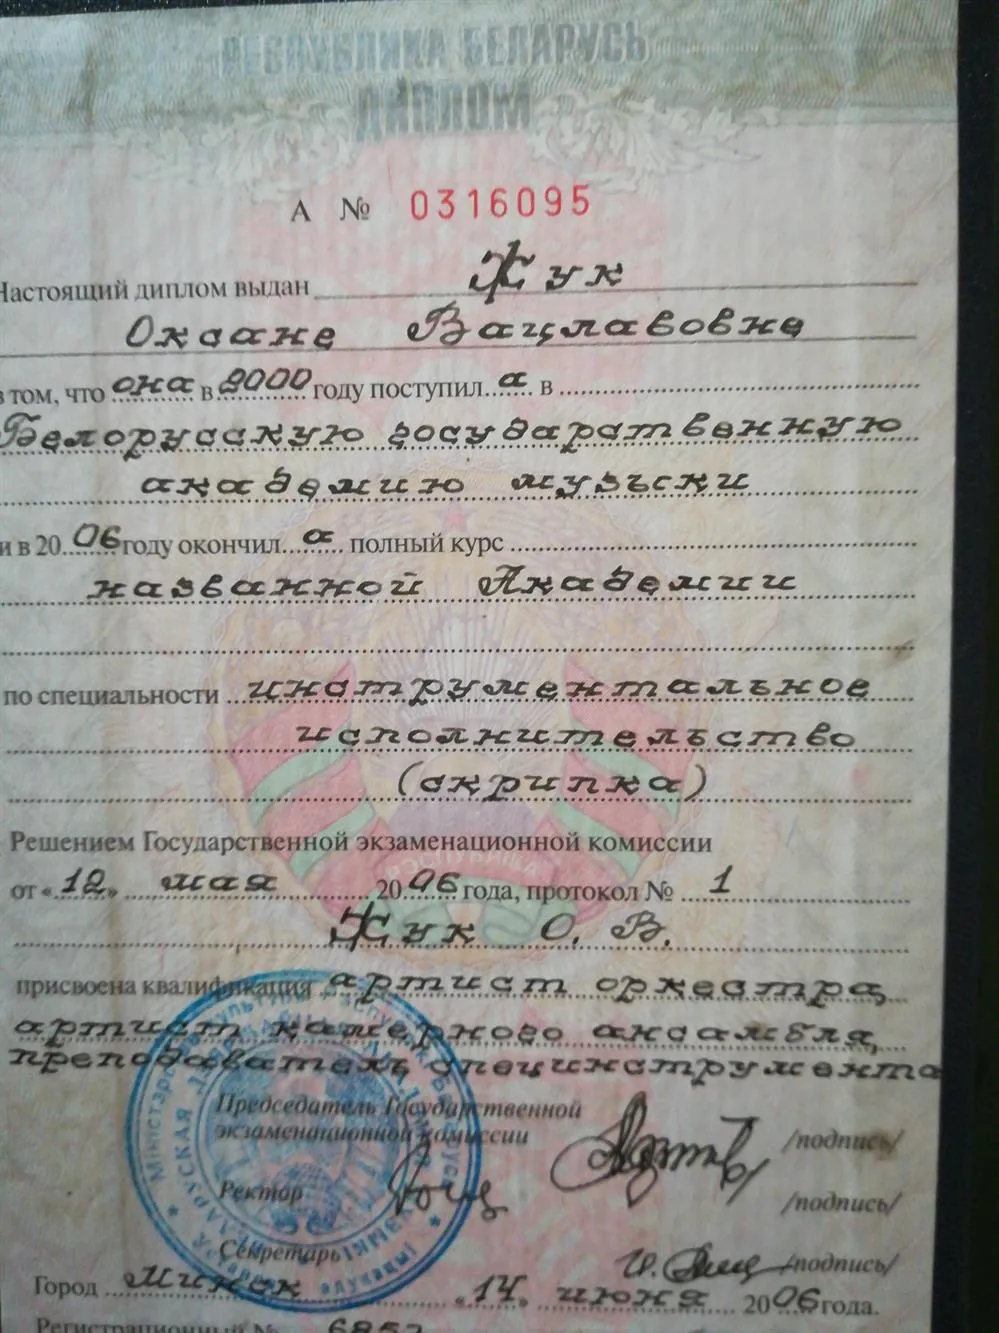 РЕСПУБЛИКА БЕЛАРУСЬ
ДИПЛОМ
А № 0316095
Настоящий диплом выдан Жук
Оксане Вацлавовне
в том, что она в 2000 году поступил а в
Белорусскую государственную
академию музыки
и в 20 06 году окончил а полный курс
названной Академии
по специальности инструментальное
исполнительство
(скрипка)
Решением Государственной экзаменационной комиссии
от «12» мая 20 06 года, протокол № 1
Жук О. В.
присвоена квалификация артист оркестра,
артист камерного ансамбля,
преподаватель специнструмента
Председатель Государственной
экзаменационной комиссии /подпись/
Ректор /подпись/
Секретарь /подпись/
Город Минск «14» июня 20 06 года.
Регистрационный № 6852